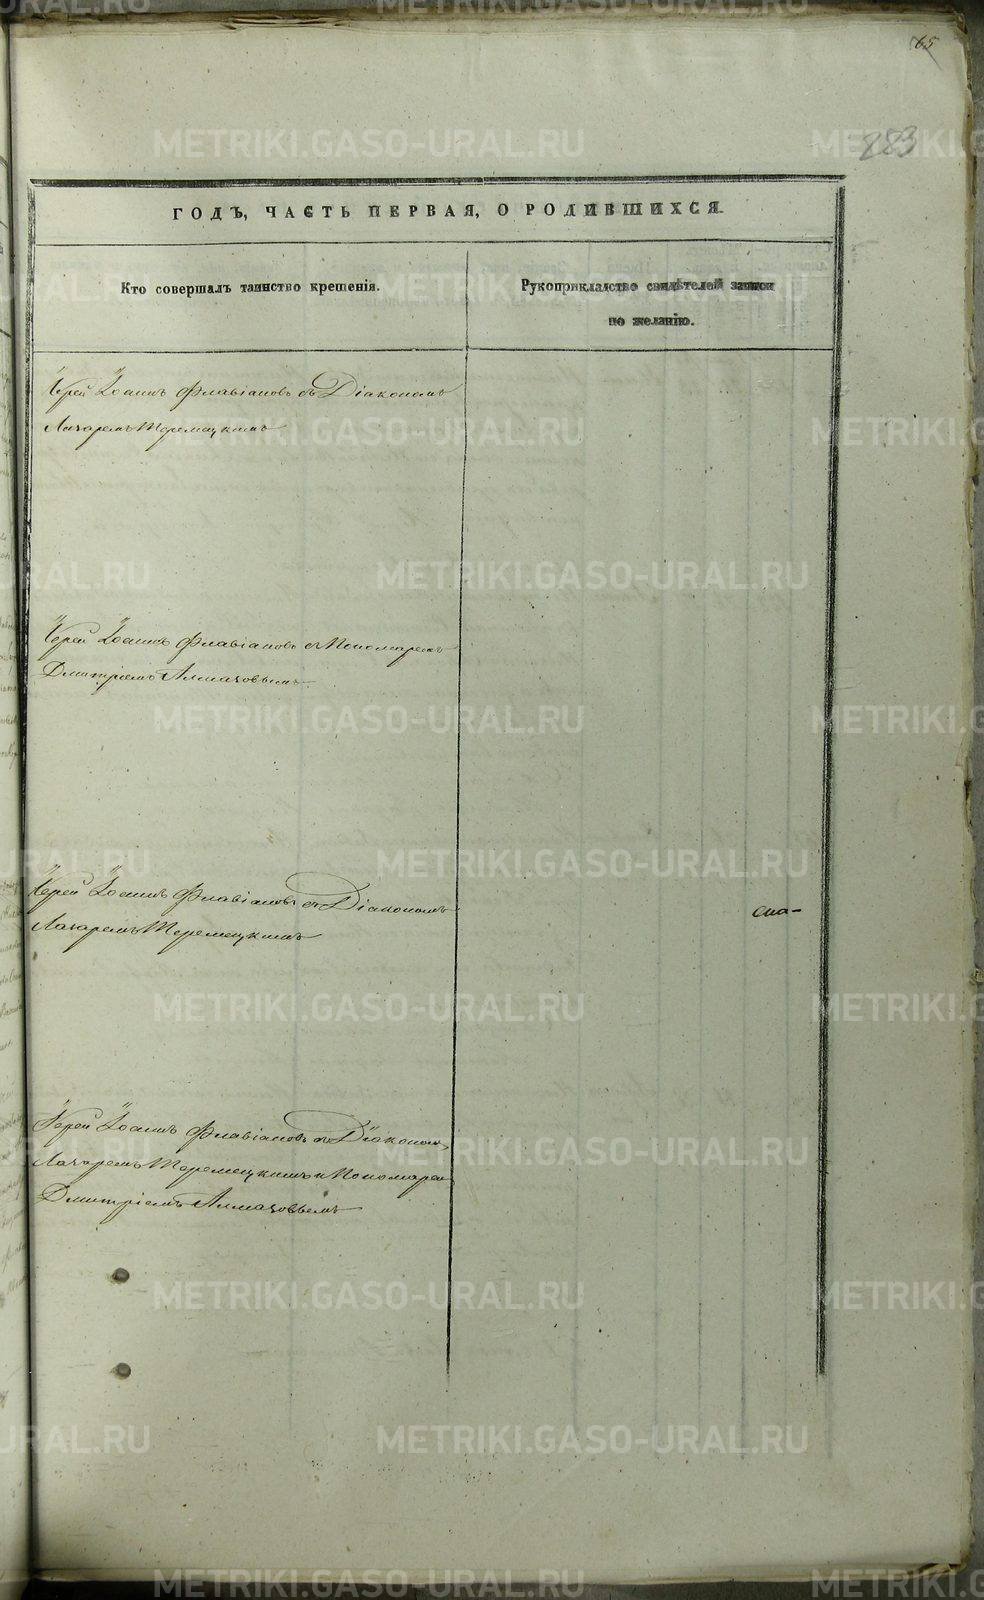 65
283
ГОДЪ, ЧАСТЬ ПЕРВАЯ, О РОДИВШИХСЯ.
Кто совершалъ таинство крещенія.
Рукоприкладство свидѣтелей записи
по желанію.
Іерей Іоаннъ Флавіановъ съ Діакономъ
Лазаремъ Теремецкимъ
Іерей Іоаннъ Флавіановъ съ Пономаремъ
Дмитріемъ Алмазовымъ
Іерей Іоаннъ Флавіановъ съ Діакономъ
Лазаремъ Теремецкимъ
Іерей Іоаннъ Флавіановъ съ Діакономъ
Лазаремъ Теремецкимъ и Пономарем
Дмитріемъ Алмазовымъ
METRIKI.GASO-URAL.RU